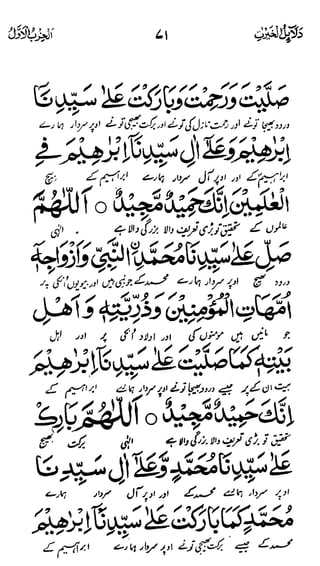 دلائل الخیرات ۷۱ الحزب الاول
صَلَّيْتَ وَرَحِمْتَ وَبَارَكْتَ عَلٰى سَيِّدِنَا
درود بھیجا تونے اور رحمت نازل کی تونے اور برکت بھیجی تونے اوپر سردار ہمارے
اِبْرٰهِيْمَ وَعَلٰٓى اٰلِ سَيِّدِنَآ اِبْرٰهِيْمَ فِي
ابراہیم کے اور اوپر آل سردار ہمارے ابراہیم کے بیچ
الْعٰلَمِيْنَ اِنَّكَ حَمِيْدٌ مَّجِيْدٌ ○ اَللّٰهُمَّ
عالموں کے تحقیق تو بڑی تعریف والا بزرگی والا ہے الٰہی
صَلِّ عَلٰى سَيِّدِنَا مُحَمَّدِ ِۨالنَّبِيِّ وَاَزْوَاجِهٖٓ
درود بھیج اوپر سردار ہمارے محمد کے جو نبی ہیں اور بیویوں انکی پر
اُمَّهَاتِ الْمُؤْمِنِيْنَ وَذُرِّيَّتِهٖ وَاَهْلِ
جو مائیں ہیں مومنوں کی اور اولاد انکی پر اور اہل
بَيْتِهٖ كَمَا صَلَّيْتَ عَلٰى سَيِّدِنَآ اِبْرٰهِيْمَ
بیت ان کے پر جیسے درود بھیجا تونے اوپر سردار ہمارے ابراہیم کے
اِنَّكَ حَمِيْدٌ مَّجِيْدٌ ○ اَللّٰهُمَّ بَارِكْ
تحقیق تو بڑی تعریف والا بزرگی والا ہے الٰہی برکت بھیج
عَلٰى سَيِّدِنَا مُحَمَّدٍ وَّعَلٰٓى اٰلِ سَيِّدِنَا
اوپر سردار ہمارے محمد کے اور اوپر آل سردار ہمارے
مُحَمَّدٍ كَمَا بَارَكْتَ عَلٰى سَيِّدِنَآ اِبْرٰهِيْمَ
محمد کے جیسے برکت بھیجی تونے اوپر سردار ہمارے ابراہیم کے